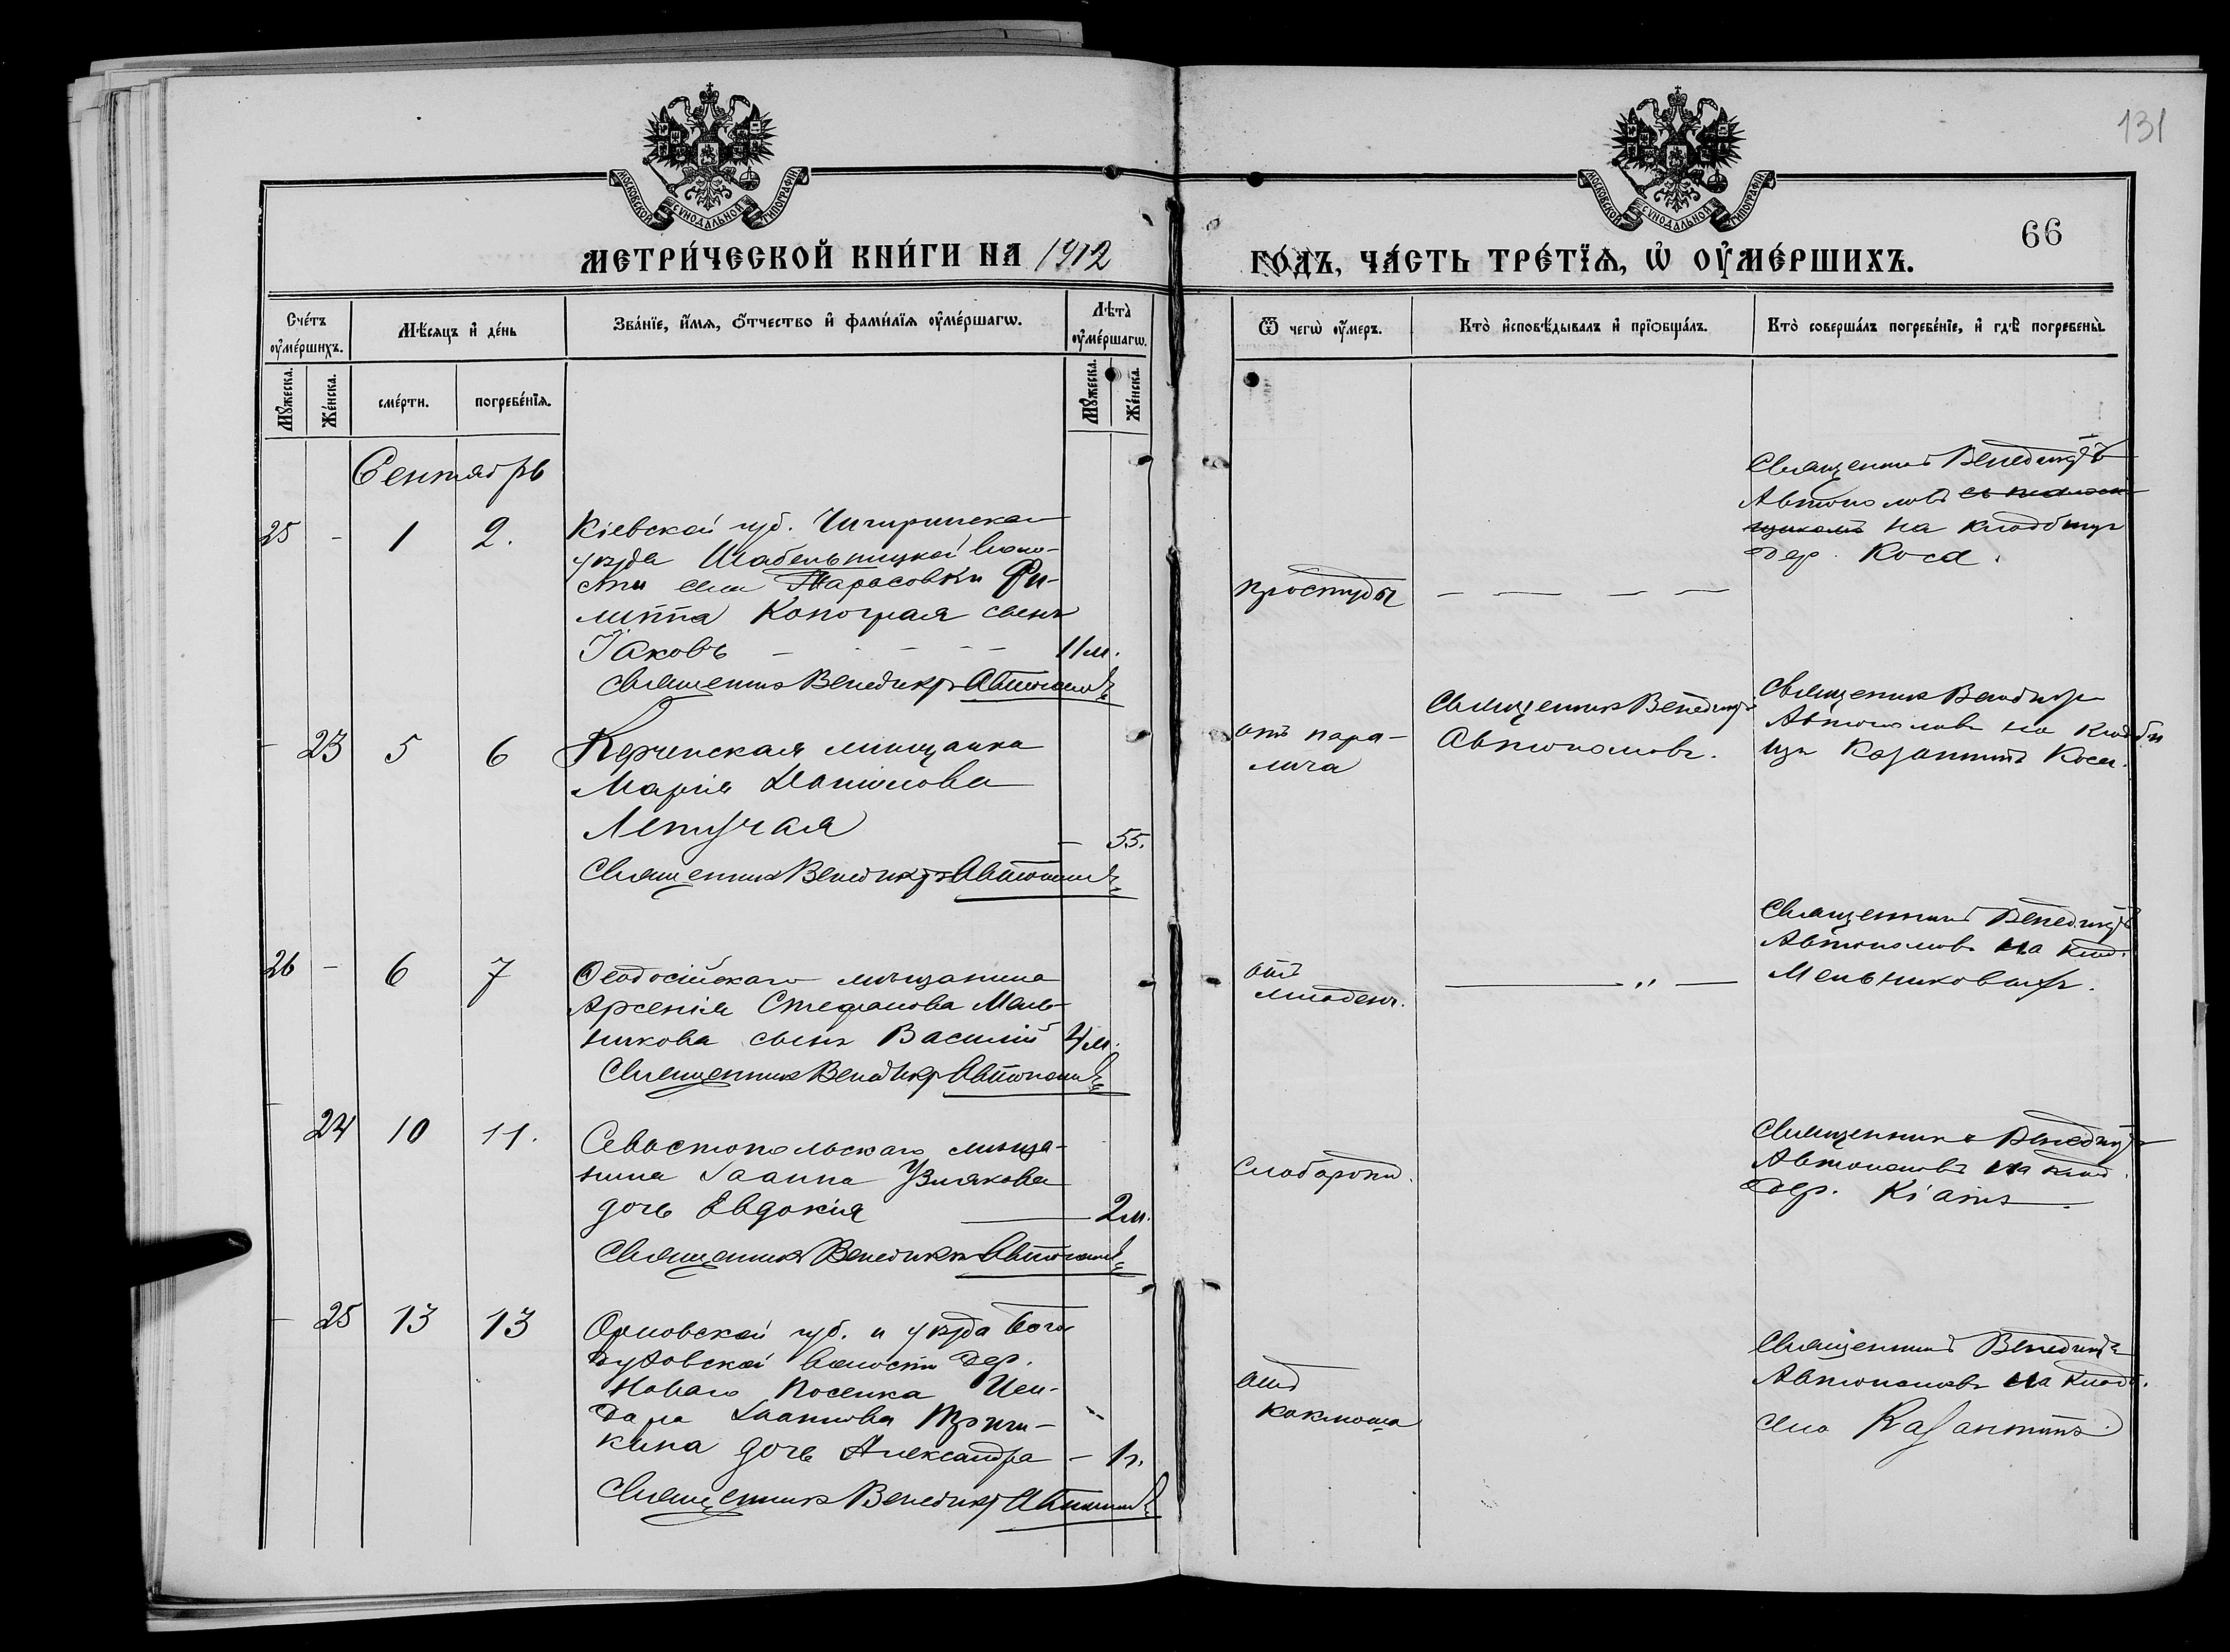 131
МОСКОВСКОЙ СУНОДАЛЬНОЙ ТИПОГРАФІИ
МОСКОВСКОЙ СУНОДАЛЬНОЙ ТИПОГРАФІИ
66
МЕТРИ́ЧЕСКОЙ КНИ́ГИ НА 1912
ГО́ДЪ, ЧА́СТЬ ТРЕ́ТЇѦ, Ѡ҆ ОУ҆МЕ́РШИХЪ.
Сче́тъ оу҆ме́ршихъ.
Мѣ́сяцъ и҆ де́нь
Зва́нїе, и҆́мѧ, ѻ҆́тчество и҆ фами́лїѧ оу҆ме́ршагѡ.
Лѣта̀ оу҆ме́ршагѡ.
Ѿ чегѡ̀ оу҆́меръ.
Кто̀ и҆сповѣ́дывалъ и҆ прїѡбща́лъ.
Кто̀ соверша́лъ погребе́нїе, и҆ гдѣ̀ погребены̀.
Мꙋ́жеска.
Же́нска.
сме́рти.
погребе́нїѧ.
Мꙋ́жеска.
Же́нска.
Сентябрь
25 - 1 2.
Кіевской губ. Чигиринскаго
уѣзда Шабельницкой воло-
сти села Тарасовки Фи-
липпа Конограя сынъ
Іаковъ - - - - 11 м.
Священникъ Венедиктъ Автономовъ
простуды
— — — —
Священникъ Венедиктъ
Автономовъ
на кладбищѣ
дер. Коса.
- 23 5 6
Керченская мѣщанка
Марія
Летучая
— 55.
Священникъ Венедиктъ Автономовъ
отъ пара-
лича
Священникъ Венедиктъ
Автономовъ.
Священникъ Венедиктъ
Автономовъ на кладби
щѣ Казантипъ Коса.
26 - 6 7
Ѳеодосійскаго мѣщанина
Арсенія Стефанова Мель-
никова сынъ Василій 4 м.
Священникъ Венедиктъ Автономовъ
отъ
младенч.
— " —
Священникъ Венедиктъ
Автономовъ на клад.
Мельниковыхъ.
- 24 10 11.
Севастопольскаго мѣща-
нина Іоанна
дочь Евдокія — 2 м.
Священникъ Венедиктъ Автономовъ
Слабороги.
Священникъ Венедиктъ
Автономовъ на клад.
дер. Кіатъ.
- 25 13 13
Орловской губ. и уѣзда Бого-
духовской волости дер.
Новаго Поселка
Іоаннова
кина дочь Александра — 1 г.
Священникъ Венедиктъ Автономовъ
отъ
коклюша
Священникъ Венедиктъ
Автономовъ на кладб.
село Казантипъ.